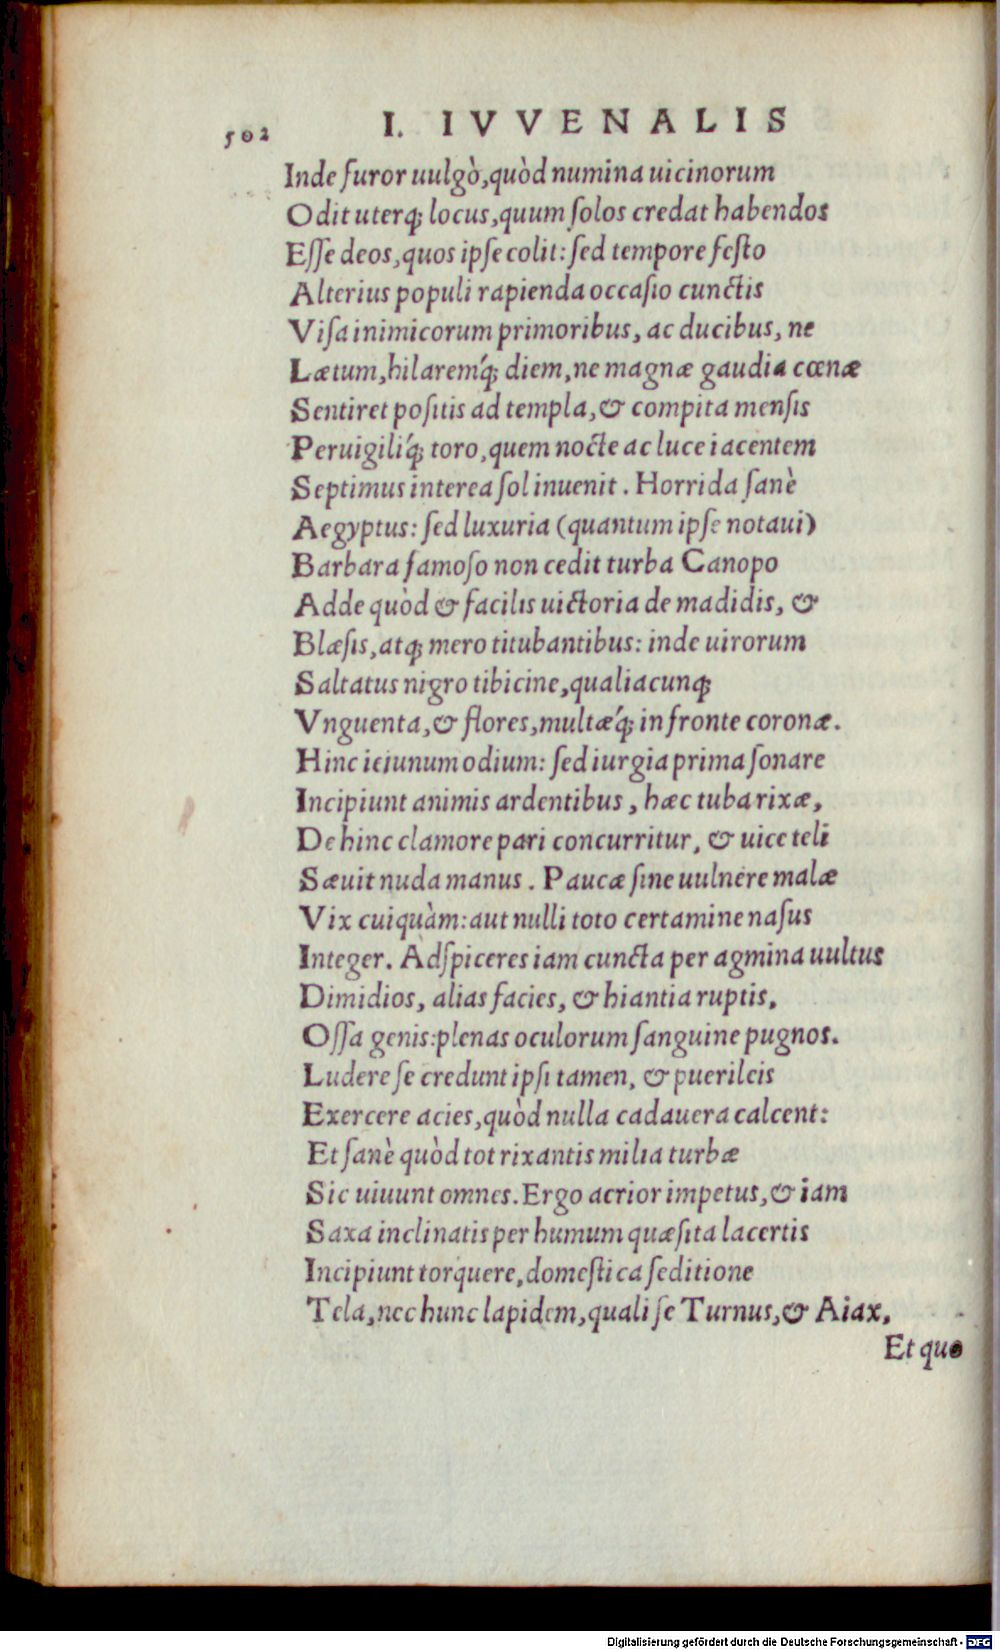 502 I. IVVENALIS
Inde furor uulgò, quòd numina uicinorum
Odit uterq; locus, quum ſolos credat habendos
Eſſe deos, quos ipſe colit: ſed tempore feſto
Alterius populi rapienda occaſio cunctis
Viſa inimicorum primoribus, ac ducibus, ne
Lætum, hilaremq́; diem, ne magnæ gaudia cœnæ
Sentiret poſitis ad templa, & compita menſis
Peruigiliq́; toro, quem nocte ac luce iacentem
Septimus interea ſol inuenit. Horrida ſanè
Aegyptus: ſed luxuria (quantum ipſe notaui)
Barbara famoſo non cedit turba Canopo
Adde quòd & facilis uictoria de madidis, &
Blæſis, atq; mero titubantibus: inde uirorum
Saltatus nigro tibicine, qualiacunq;
Vnguenta, & flores, multæq́; in fronte coronæ.
Hinc ieiunum odium: ſed iurgia prima ſonare
Incipiunt animis ardentibus, hæc tuba rixæ,
Dehinc clamore pari concurritur, & uice teli
Sæuit nuda manus. Paucæ ſine uulnere malæ
Vix cuiquàm: aut nulli toto certamine naſus
Integer. Adſpiceres iam cuncta per agmina uultus
Dimidios, alias facies, & hiantia ruptis,
Oſſa genis: plenas oculorum ſanguine pugnos.
Ludere ſe credunt ipſi tamen, & puerileis
Exercere acies, quòd nulla cadauera calcent:
Et ſanè quòd tot rixantis milia turbæ
Sic uiuunt omnes. Ergo acrior impetus, & iam
Saxa inclinatis per humum quæſita lacertis
Incipiunt torquere, domeſtica ſeditione
Tela, nec hunc lapidem, quali ſe Turnus, & Aiax,
Et quo
Digitalisierung gefördert durch die Deutsche Forschungsgemeinschaft - DFG